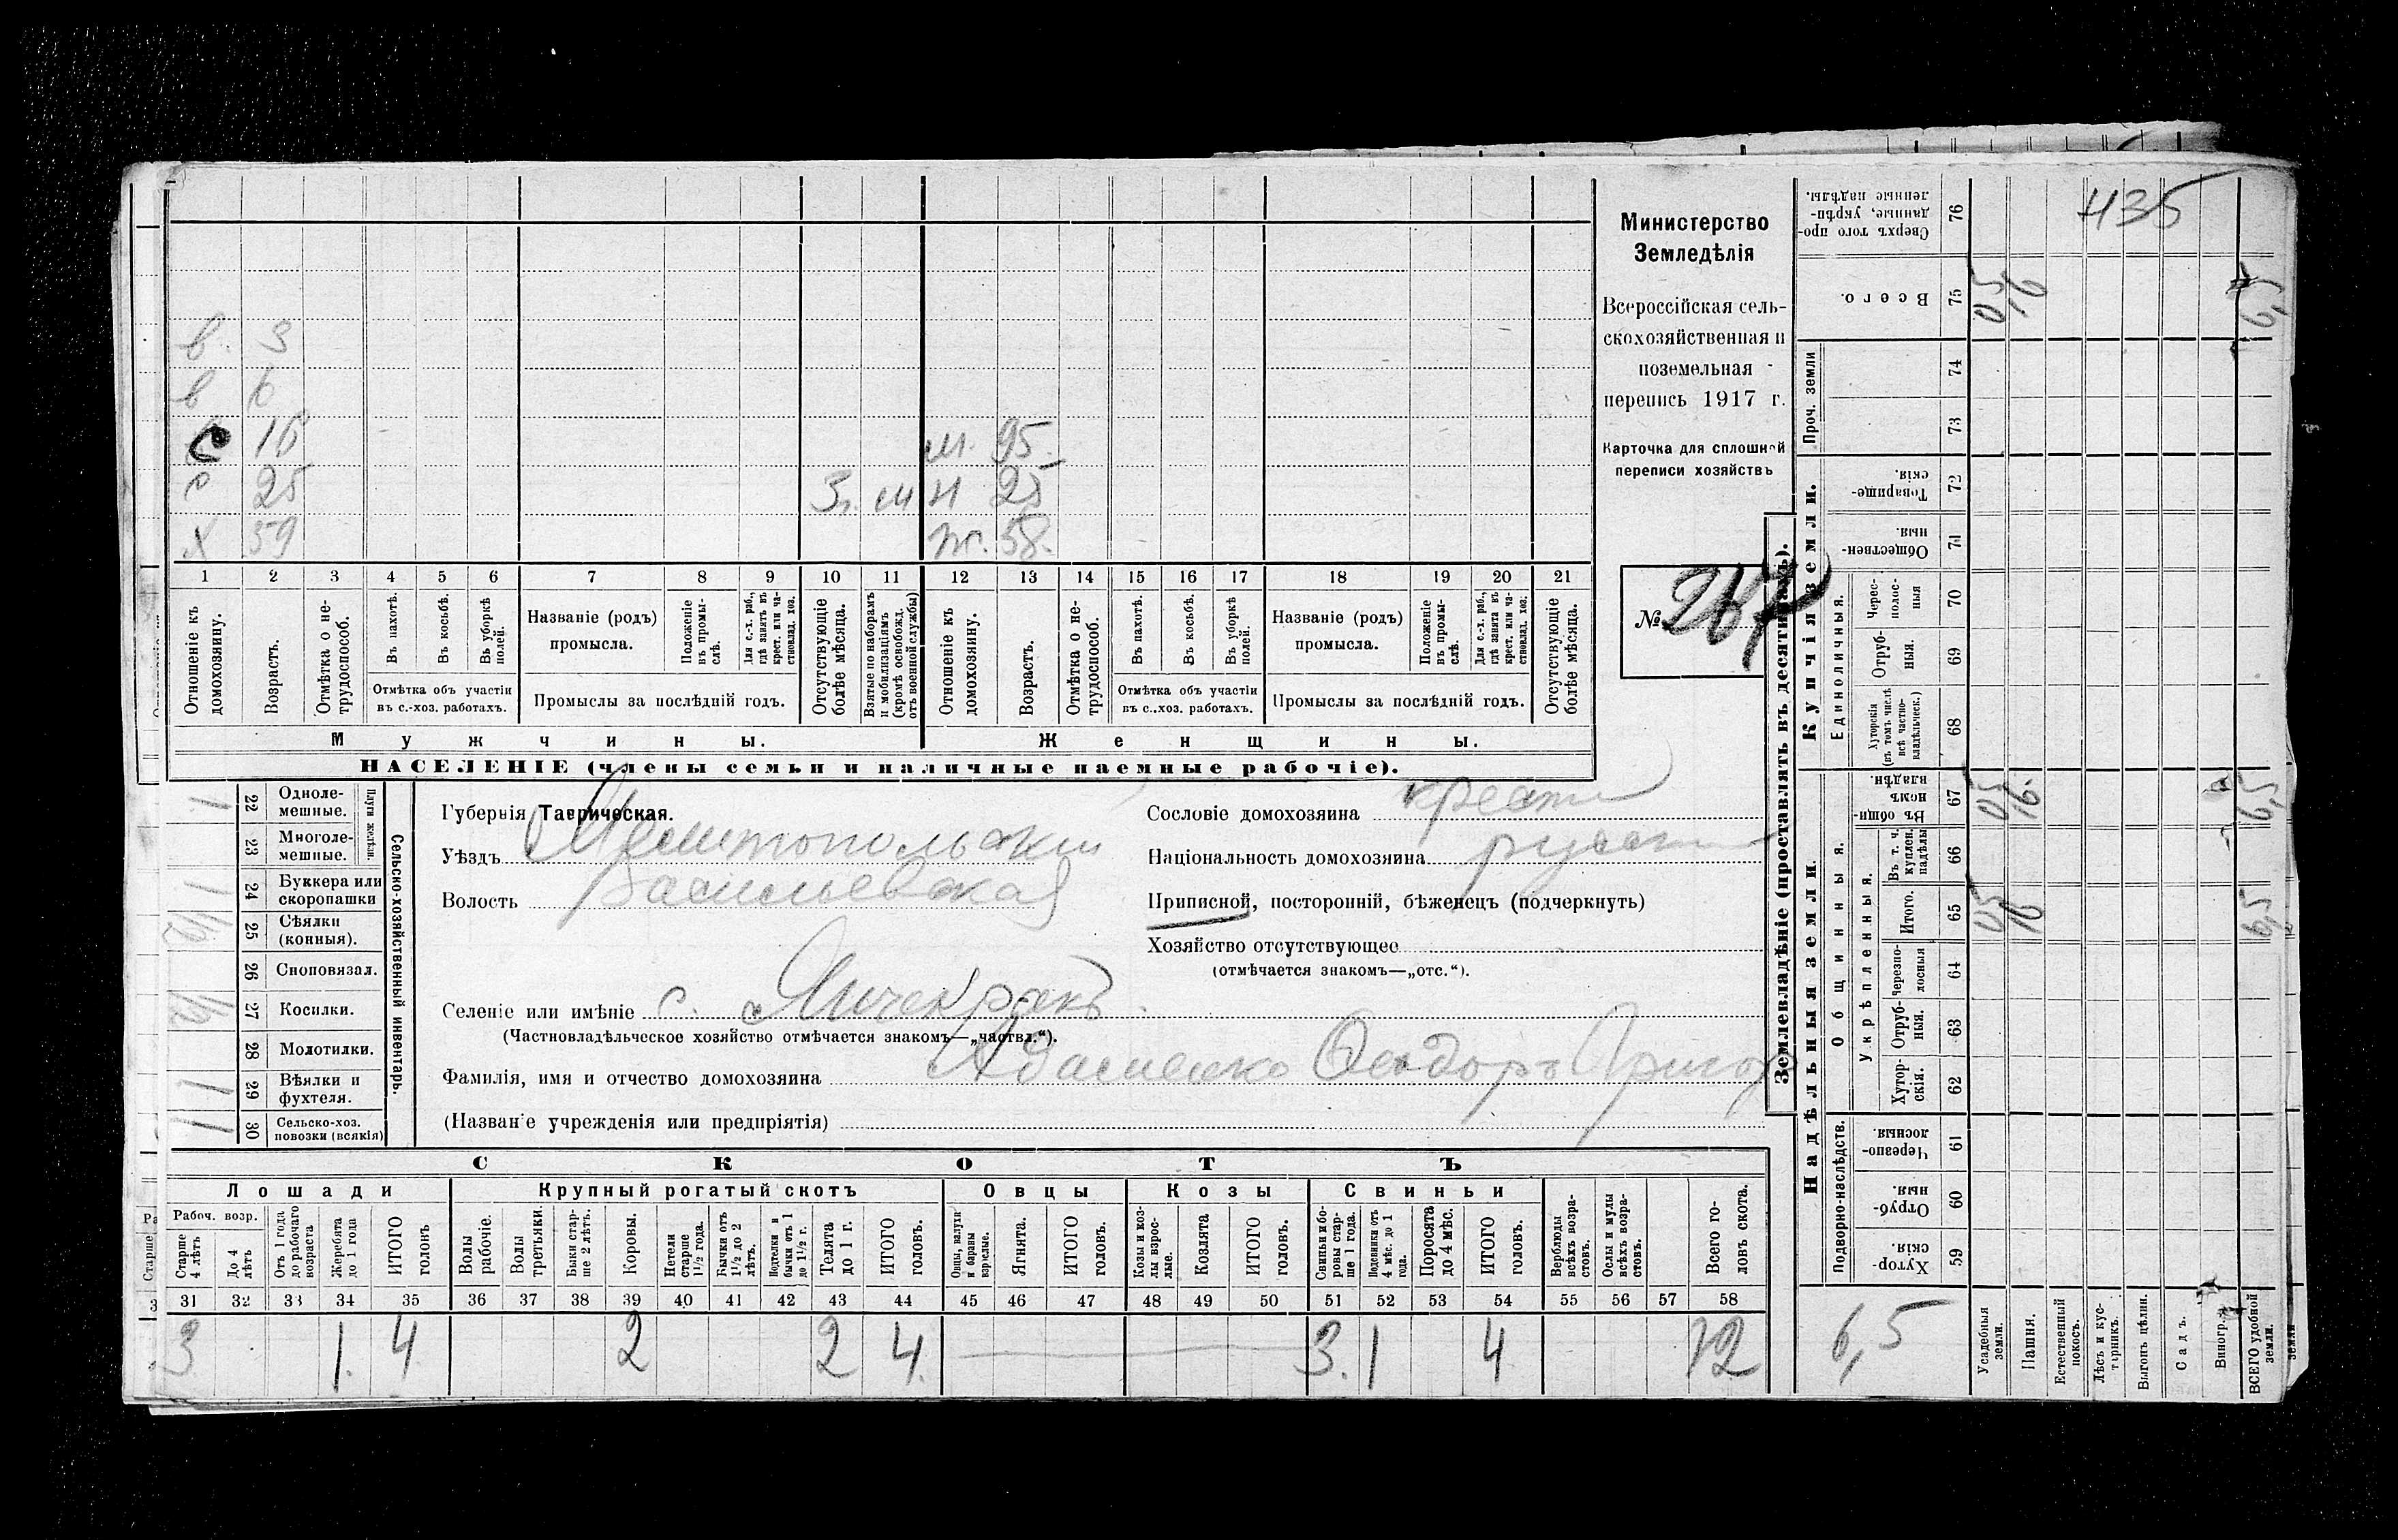 435
Министерство
Земледѣлія
Всероссійская сель-
скохозяйственная и
поземельная
перепись 1917 г.
Карточка для сплошной
переписи хозяйствъ
№ 267
в. 3
в 6
с 16 м. 95.
с 25 3. м н 25
х 59 ж. 58.
1 2 3 4 5 6 7 8 9 10 11 12 13 14 15 16 17 18 19 20 21
Отношеніе къ домохозяину.
Возрастъ.
Отмѣтка о не-трудоспособ.
Въ пахотѣ.
Въ косьбѣ.
Въ уборкѣ полей.
Отмѣтка объ участіи
въ с.-хоз. работахъ.
Названіе (родъ)
промысла.
Положеніе въ промы-слѣ.
Для с.-х. раб., гдѣ занятъ въ крест. или ча-стновлад. хоз.
Промыслы за послѣдній годъ.
Отсутствующіе болѣе мѣсяца.
Взятые по наборамъ и мобилизаціямъ (кромѣ освобожд. отъ военной службы)
Отношеніе къ домохозяину.
Возрастъ.
Отмѣтка о не-трудоспособ.
Въ пахотѣ.
Въ косьбѣ.
Въ уборкѣ полей.
Отмѣтка объ участіи
въ с.-хоз. работахъ.
Названіе (родъ)
промысла.
Положеніе въ промы-слѣ.
Для с.-х. раб., гдѣ занята въ крест. или ча-стновлад. хоз.
Промыслы за послѣдній годъ.
Отсутствующіе болѣе мѣсяца.
Мужчины. Женщины.
НАСЕЛЕНІЕ (члены семьи и наличные наемные рабочіе).
Сельско-хозяйственный инвентарь.
Плуги желѣзн.
1 22 Однолемешные.
23 Многолемешные.
1 24 Буккера или скоропашки
25 Сѣялки (конныя).
26 Сноповязал.
27 Косилки.
28 Молотилки.
1 29 Вѣялки и фухтеля.
30 Сельско-хоз. повозки (всякія)
Губернія Таврическая.
Уѣздъ Мелитопольскій
Волость Васильевская
Селеніе или имѣніе с. Янчекракъ.
(Частновладѣльческое хозяйство отмѣчается знакомъ—„частвл.“).
Фамилія, имя и отчество домохозяина Адаменко Ѳедоръ Григор
(Названіе учрежденія или предпріятія)
Сословіе домохозяина крест
Національность домохозяина русск
Приписной, посторонній, бѣженецъ (подчеркнуть)
Хозяйство отсутствующее
(отмѣчается знакомъ—„отс.“).
СКОТЪ
Лошади Крупный рогатый скотъ Овцы Козы Свиньи
Рабоч. возр.
Старше 4 лѣтъ
До 4 лѣтъ
Отъ 1 года до рабочаго возраста
Жеребята до 1 года
ИТОГО головъ
Волы рабочіе.
Волы третьяки.
Быки стар-ше 2 лѣтъ.
Коровы.
Нетели старше 1½ года.
Бычки отъ 1½ до 2 лѣтъ.
Подтелки и бычки отъ 1 до 1½ г.
Телята до 1 г.
ИТОГО головъ.
Овцы, валухи и бараны взрослые.
Ягнята.
ИТОГО головъ.
Козы и коз-лы взрос-лые.
Козлята
ИТОГО головъ.
Свиньи и бо-ровы стар-ше 1 года.
Подсвинки отъ 4 мѣс. до 1 года.
Поросята до 4 мѣс.
ИТОГО головъ.
Верблюды всѣхъ возра-стовъ.
Ослы и мулы всѣхъ возра-стовъ.
Всего го-ловъ скота.
31 32 33 34 35 36 37 38 39 40 41 42 43 44 45 46 47 48 49 50 51 52 53 54 55 56 57 58
3 1. 4 2 2 4. 3. 1 4 12
Землевладѣніе (проставлять въ десятинахъ).
Купчія земли.
Надѣльныя земли.
Сверхъ того про-данные, укрѣп-ленные надѣлы. 76
Всего. 75 05 16 6,5
Проч. земли 74 73
Товарище-скія. 72
Обществен-ныя. 71
Единоличныя.
Черес-полос-ныя 70
Отруб-ныя. 69
Хуторскія (въ томъ числѣ всѣ частно-владѣльческ.) 68
Общинныя.
Въ общин-номъ владѣн. 67 05 16. 6,5
Укрѣпленныя.
Въ т. ч. куплен. надѣлы 66
Итого. 65 05 16 6,5
Черезпо-лосныя 64
Отруб-ныя. 63
Хутор-скія. 62
Подворно-наслѣдств.
Черезпо-лосныя 61
Отруб-ныя. 60
Хутор-скія. 59
6,5
Усадебныя земли.
Пашня.
Естественный покосъ.
Лѣсъ и кус-тарникъ.
Выгонъ цѣлин.
Садъ.
Виногр.
ВСЕГО удобной земли.